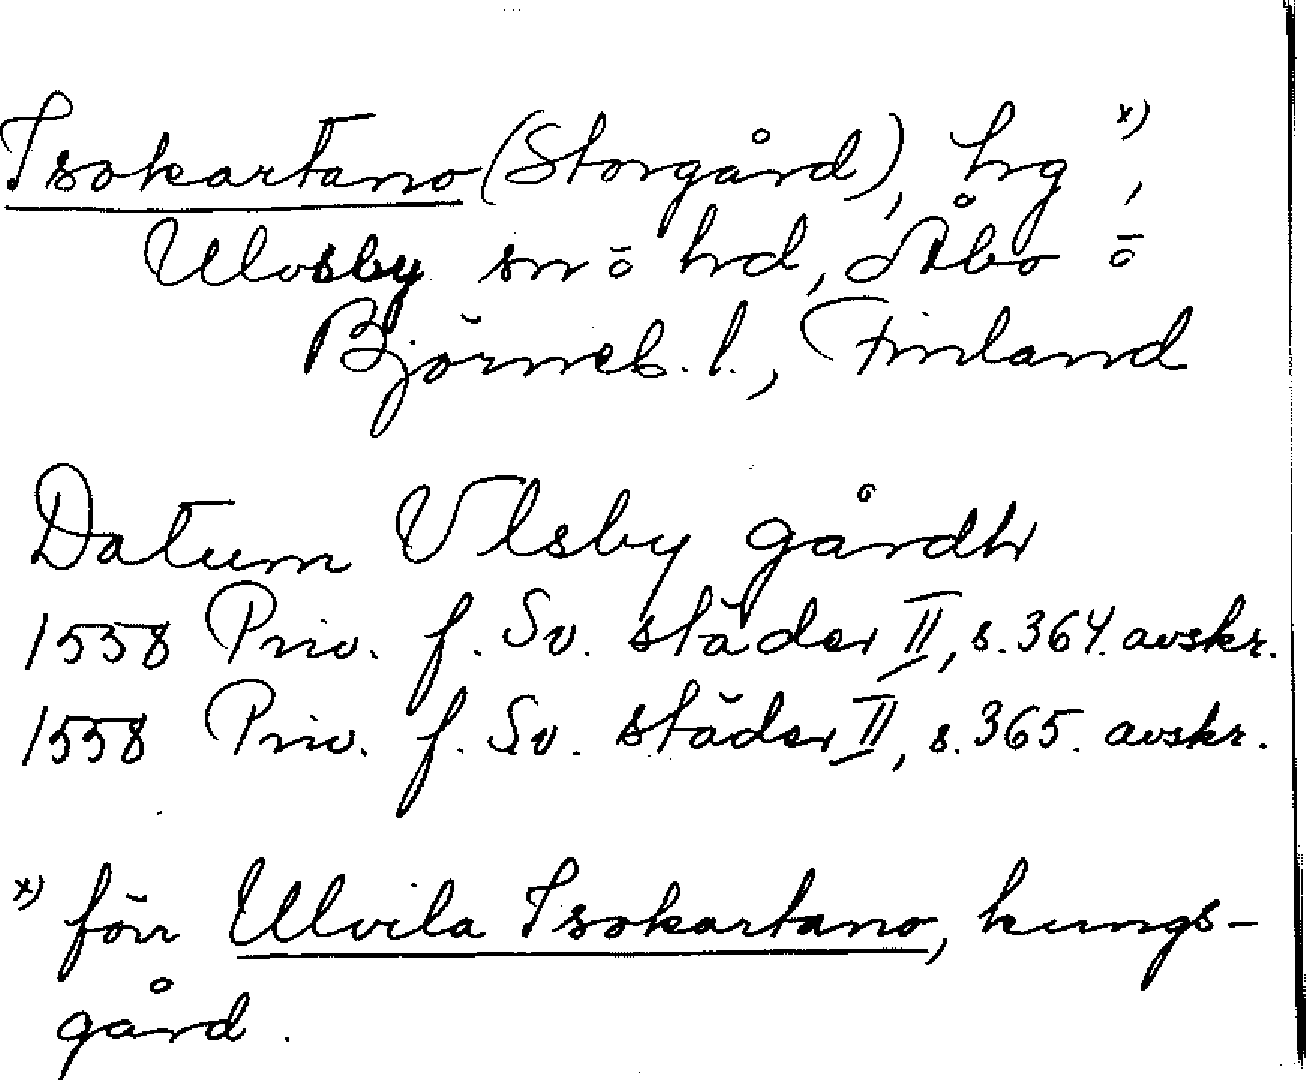 Isokartano (Storgård), hrg x),
Ulvsby sn o hrd, Åbo o
Björneb. l., Finland
Datum Vlsby gårdh
1558 Priv. f. Sv. städer II, s. 364. avskr.
1558 Priv. f. Sv. städer II, s. 365. avskr.
x) förr Ulvila Isokartano, kungs-
gård.